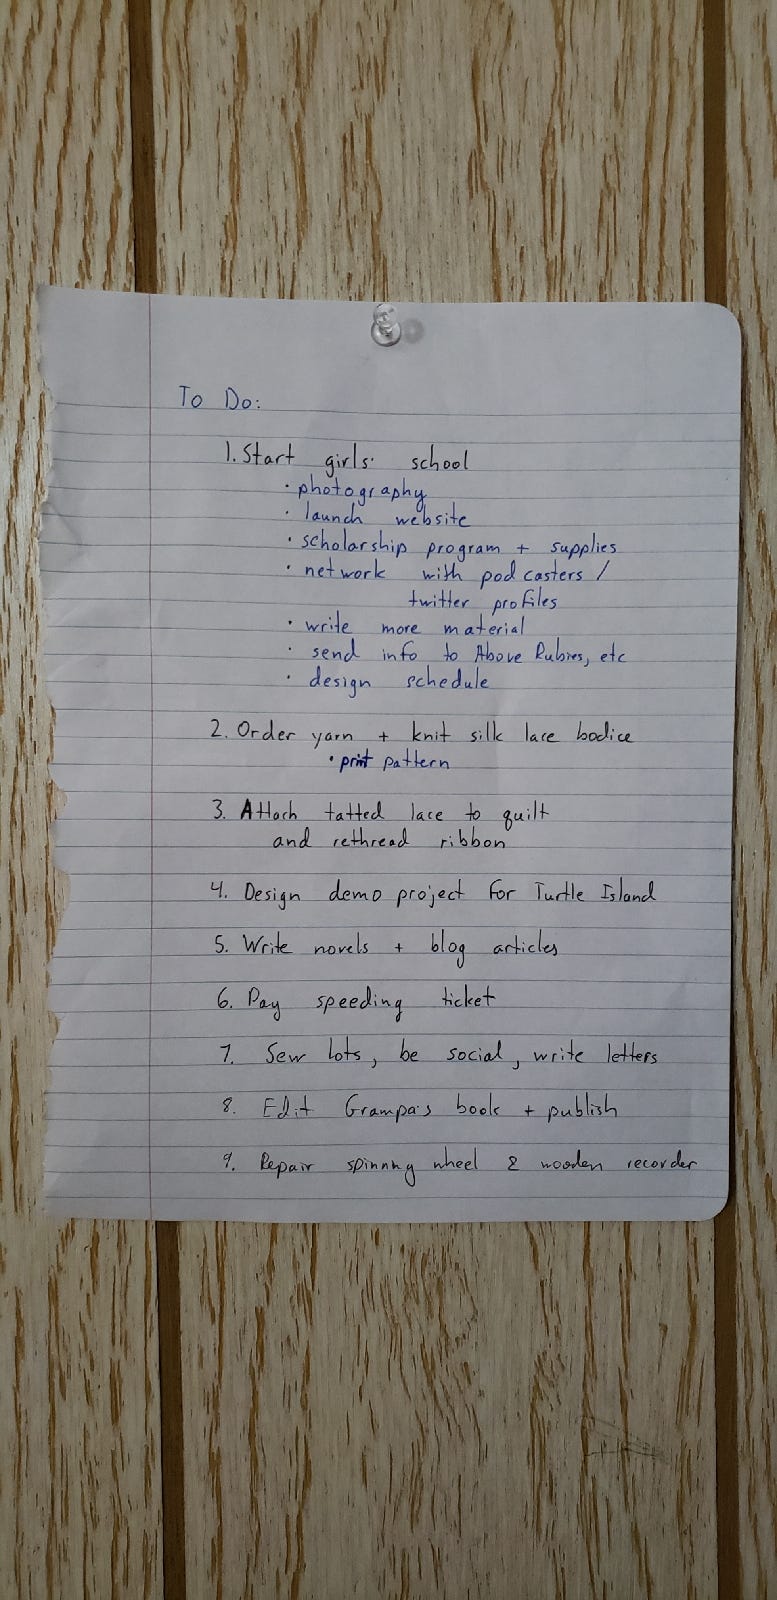 To Do:
1. Start girls' school
· photography
· launch website
· scholarship program + supplies
· network with podcasters /
twitter profiles
· write more material
· send info to Above Rubies, etc
· design schedule
2. Order yarn + knit silk lace bodice
· print pattern
3. Attach tatted lace to quilt
and rethread ribbon
4. Design demo project for Turtle Island
5. Write novels + blog articles
6. Pay speeding ticket
7. Sew lots, be social, write letters
8. Edit Grampa's book + publish
9. Repair spinning wheel & wooden recorder